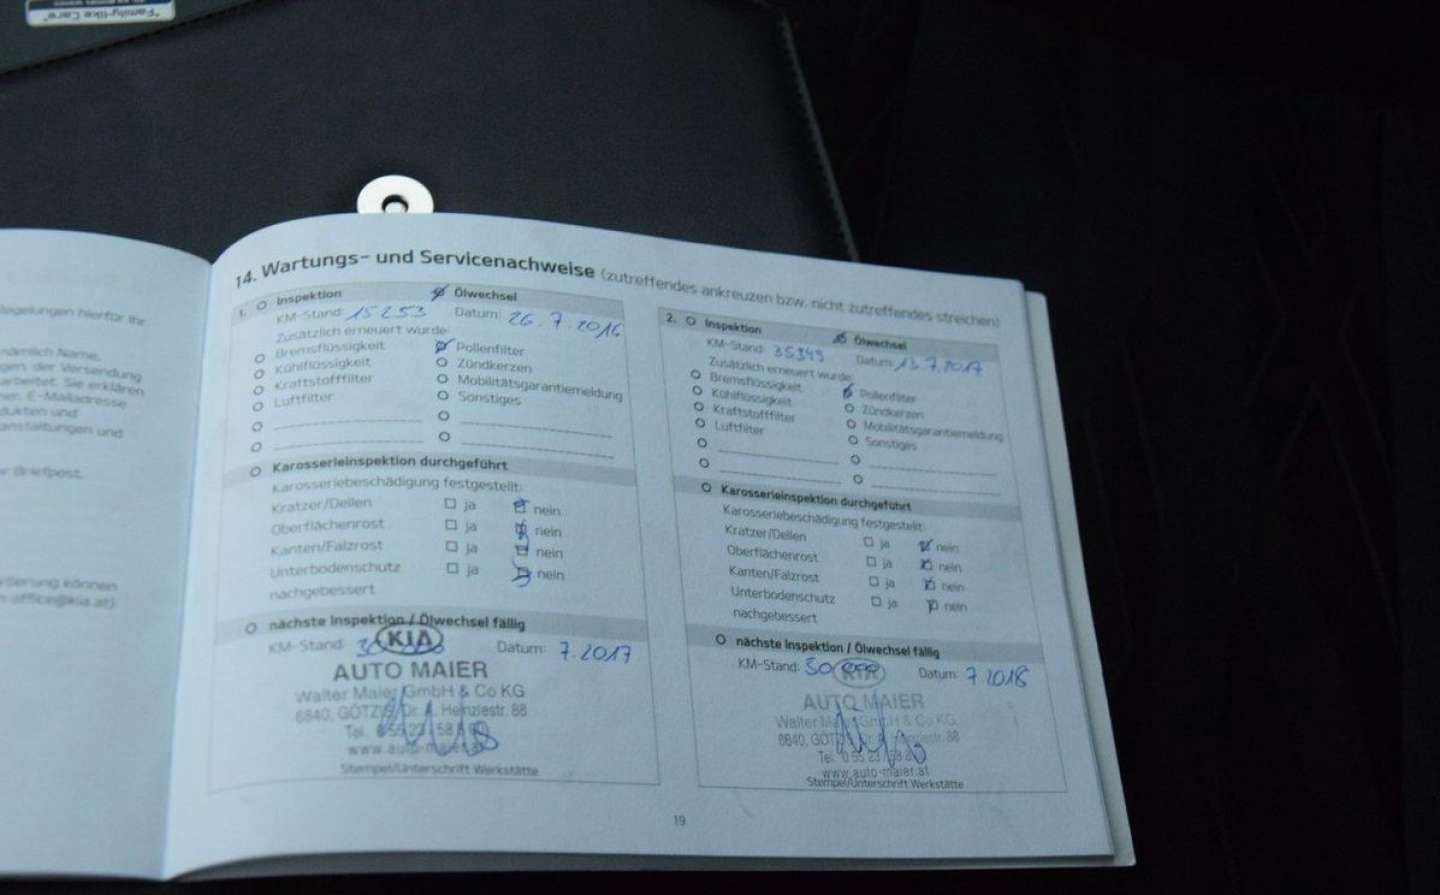 "Family-like Care"
14. Wartungs- und Servicenachweise (zutreffendes ankreuzen bzw. nicht zutreffendes streichen)
1. Inspektion Ölwechsel
KM-Stand: 15253 Datum: 26.7.2016
Zusätzlich erneuert wurde:
Bremsflüssigkeit Pollenfilter
Kühlflüssigkeit Zündkerzen
Kraftstofffilter Mobilitätsgarantiemeldung
Luftfilter Sonstiges
Karosserieinspektion durchgeführt
Karosseriebeschädigung festgestellt:
Kratzer/Dellen ja nein
Oberflächenrost ja nein
Kanten/Falzrost ja nein
Unterbodenschutz ja nein
nachgebessert
nächste Inspektion / Ölwechsel fällig
KM-Stand: Datum: 7.2017
KIA
AUTO MAIER
Walter Maier GmbH & Co KG
6840, GÖTZIS, Dr. A. Heinzlestr. 88
Tel.
www.auto-maier.at
Stempel/Unterschrift Werkstätte
2. Inspektion Ölwechsel
KM-Stand: 35349 Datum: 13.7.2017
Zusätzlich erneuert wurde:
Bremsflüssigkeit Pollenfilter
Kühlflüssigkeit Zündkerzen
Kraftstofffilter Mobilitätsgarantiemeldung
Luftfilter Sonstiges
Karosserieinspektion durchgeführt
Karosseriebeschädigung festgestellt:
Kratzer/Dellen ja nein
Oberflächenrost ja nein
Kanten/Falzrost ja nein
Unterbodenschutz ja nein
nachgebessert
nächste Inspektion / Ölwechsel fällig
KM-Stand: Datum: 7 2018
KIA
AUTO MAIER
Walter Maier GmbH & Co KG
6840, GÖTZIS, Dr. A. Heinzlestr. 88
Tel.
www.auto-maier.at
Stempel/Unterschrift Werkstätte
19
egelungen hierfür ihr
nämlich Name,
gen der Versendung
arbeitet. Sie erklären
E-Mailadresse
dukten und
anstaltungen und
Briefpost.
können
office@kia.at)